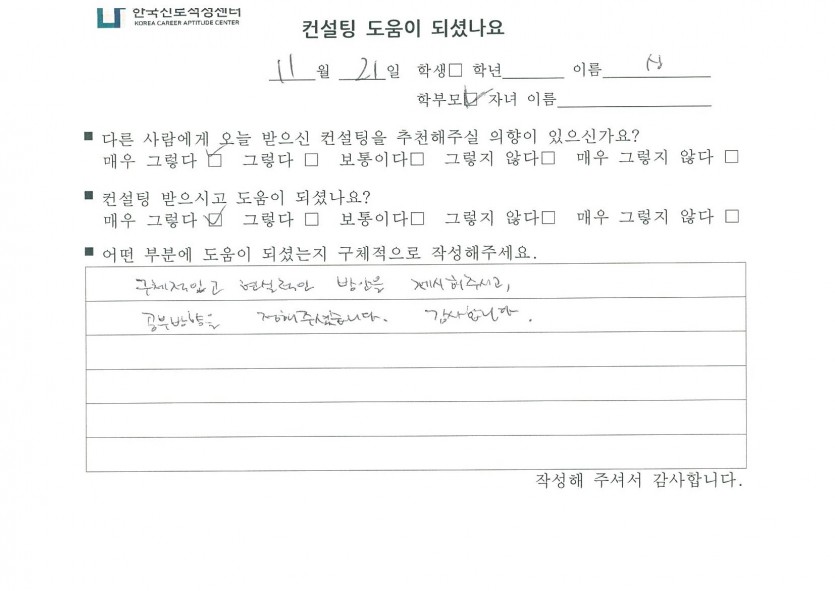 한국진로적성센터
KOREA CAREER APTITUDE CENTER
컨설팅 도움이 되셨나요
11월 21일 학생□ 학년 이름
학부모☑ 자녀 이름
■ 다른 사람에게 오늘 받으신 컨설팅을 추천해주실 의향이 있으신가요?
매우 그렇다 ☑ 그렇다 □ 보통이다□ 그렇지 않다□ 매우 그렇지 않다 □
■ 컨설팅 받으시고 도움이 되셨나요?
매우 그렇다 ☑ 그렇다 □ 보통이다□ 그렇지 않다□ 매우 그렇지 않다 □
■ 어떤 부분에 도움이 되셨는지 구체적으로 작성해주세요.
구체적이고 현실적인 방안을 제시해주시고,
공부방향을 정해주셨습니다. 감사합니다.
작성해 주셔서 감사합니다.